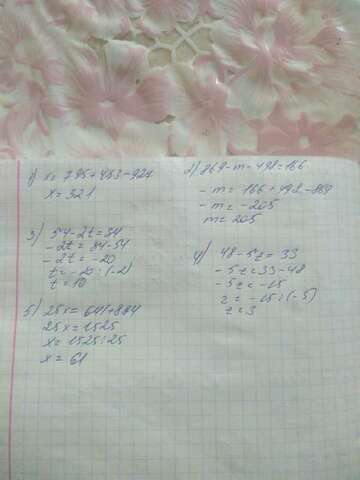 1) x = 795+453-927
x = 321
2) 869-m-498=166
-m = 166+498-869
-m = -205
m = 205
3) 54-2t=34
-2t = 34-54
-2t = -20
t = -20:(-2)
t = 10
4) 48-5z = 33
-5z = 33-48
-5z = -15
z = -15:(-5)
z = 3
5) 25x = 641+884
25x = 1525
x = 1525:25
x = 61